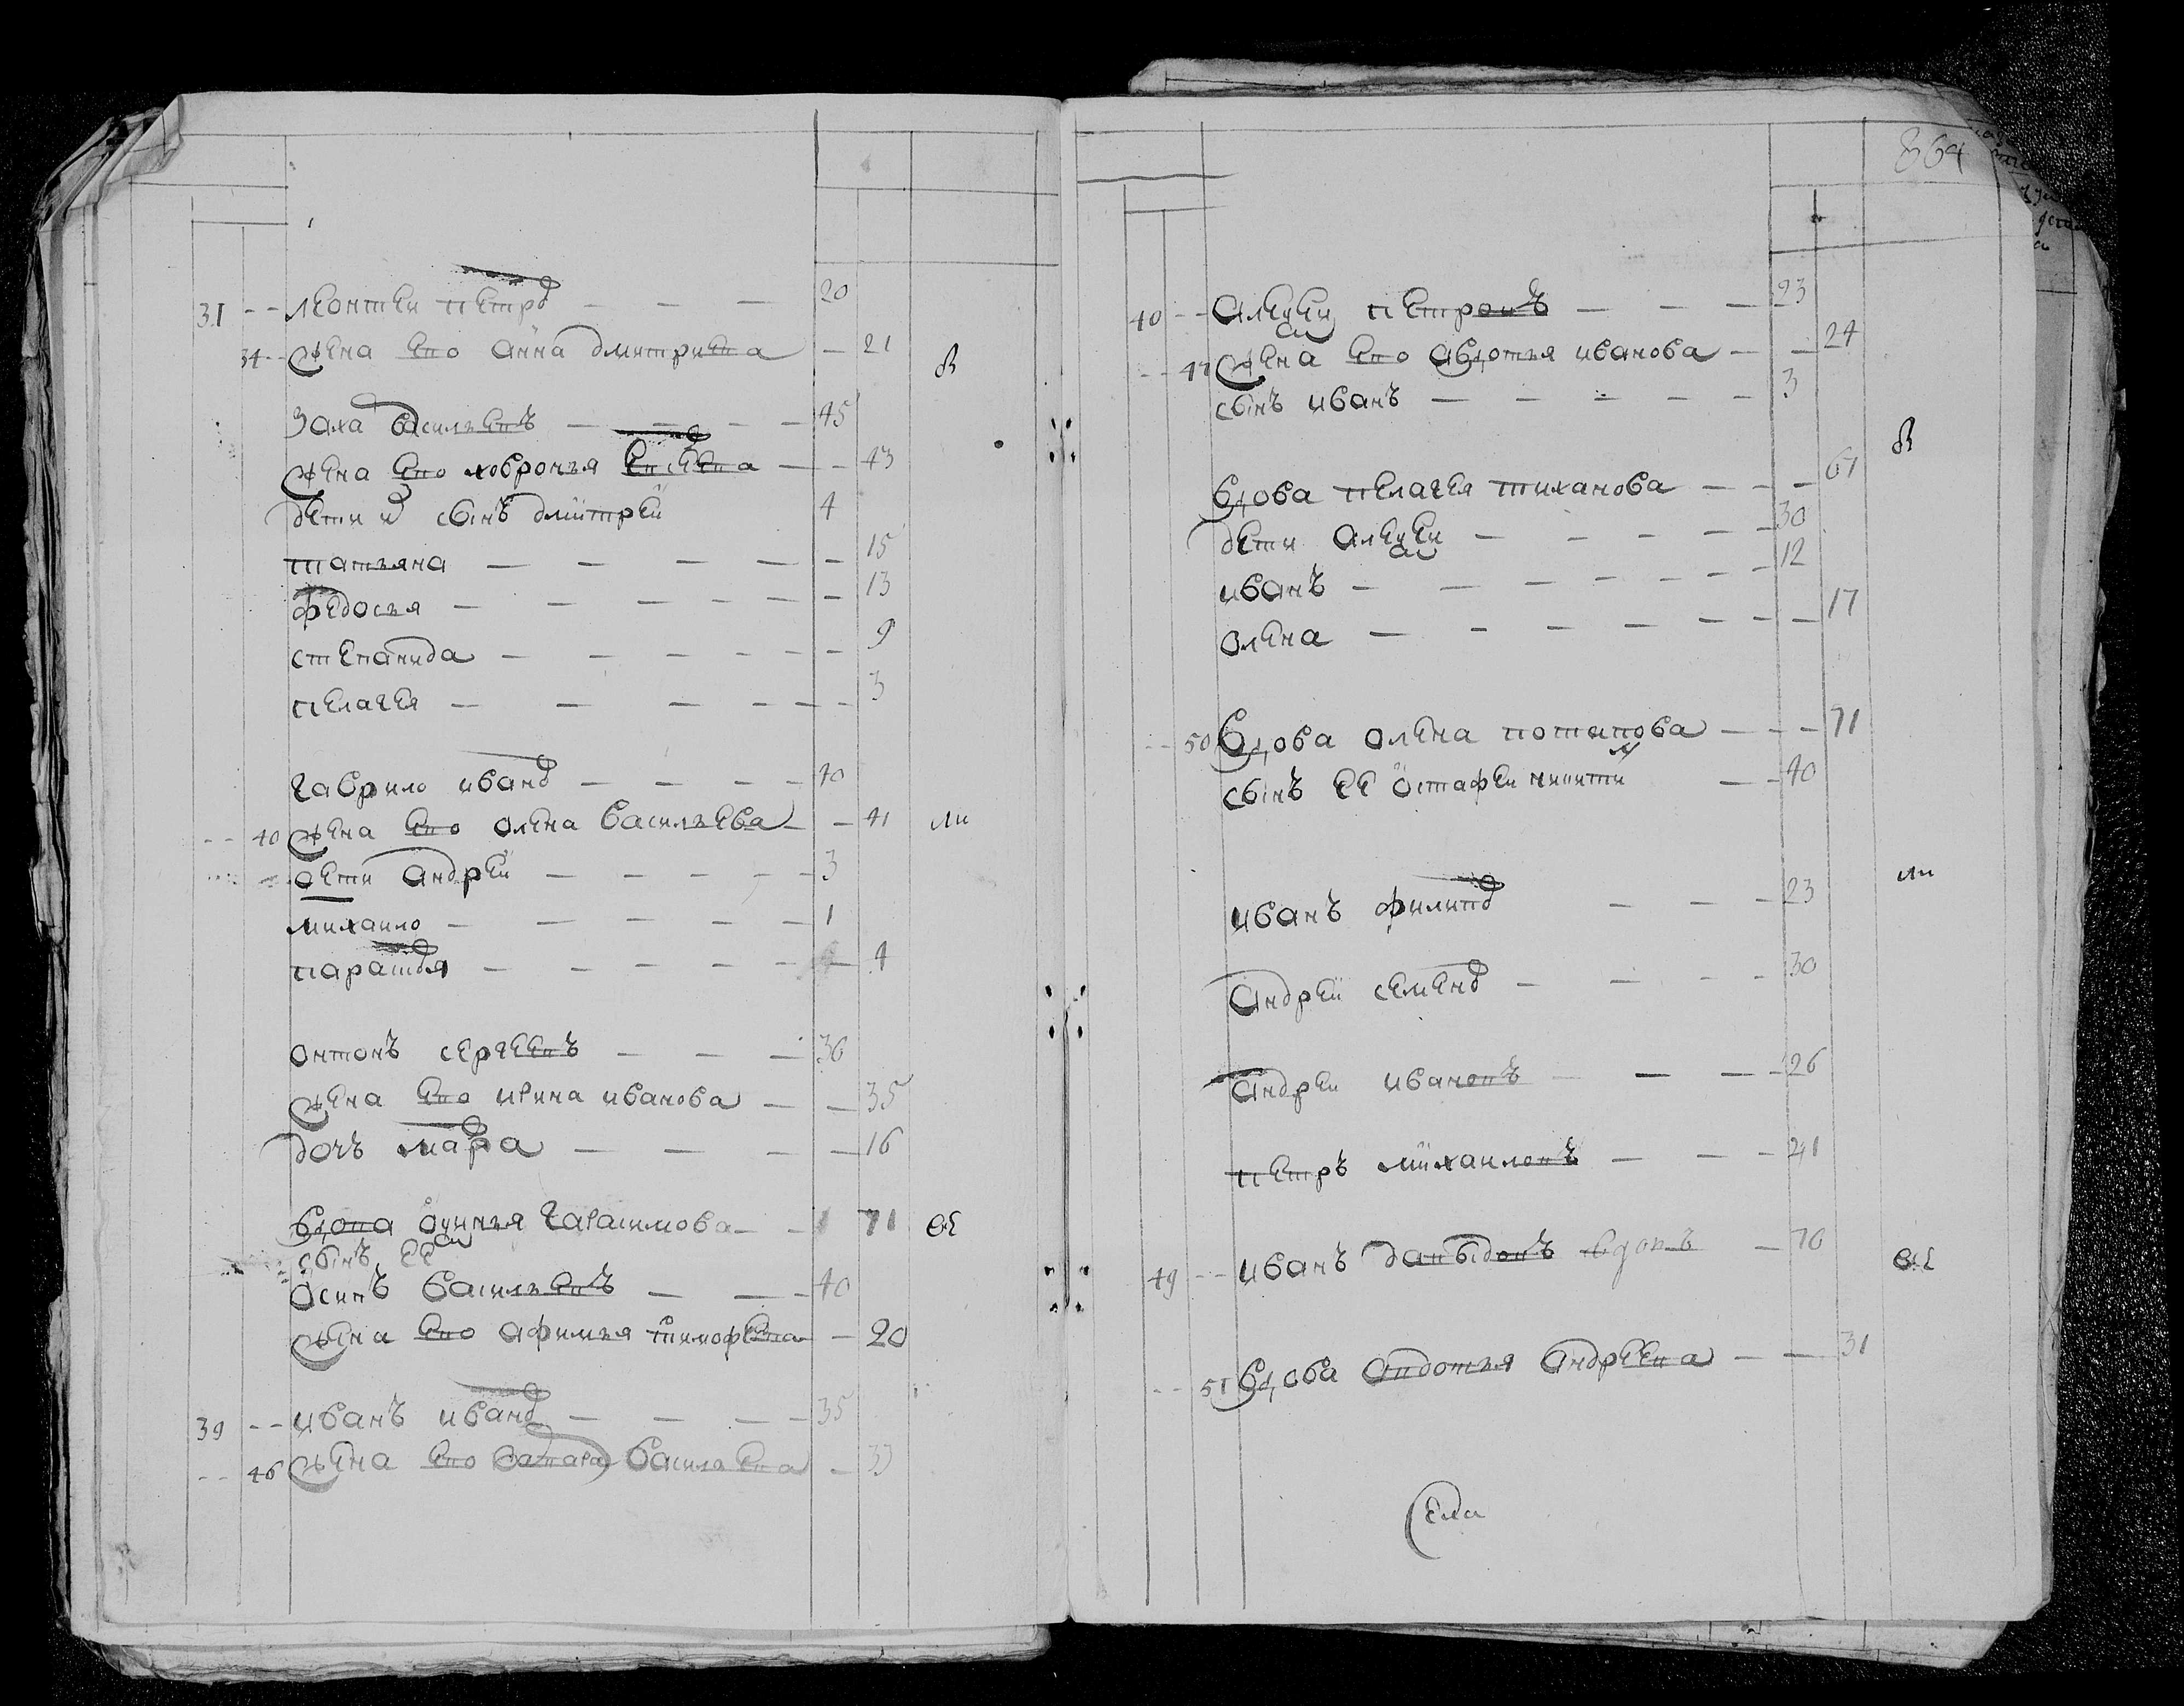 31 -- леонтеи петров — — — 20
34 -- жена ево анна дмитриева — 21
в
Захар васильевъ — — — — 45
жена ево ховронья евсеева — — 43
дети их сынъ дмитреи 4
татьяна — — — — — 15
федосья — — — — — — — 13
степанида — — — — — — 9
пелагея — — — — — — 3
гаврило иванов — — — — 40
-- 40 жена ево олена васильева — — 41 ли
дети андреи — — — — — 3
михаило — — — — — 1
парасковя — — — — — — 4
онтонъ сергеевъ — — — 36
жена ево ирина иванова — — 35
дочь марфа — — — — 16
вдова оксинья гарасимова — — 71 ве
сынъ ее
осипъ васильевъ — — — 40
жена ево афимья тимофеева — 20
39 -- иванъ иванов — — — — 35
-- 46 жена ево варвара васильева — 33
864
40 -- алексеи петровъ — — — 23
-- 47 жена ево авдотья иванова — — 24
сынъ иванъ — — — — — 3
в
вдова пелагея тиханова — — — 67
дети алексеи — — — — 30
иванъ — — — — — — 12
олена — — — — — — — 17
-- 50 вдова олена потапова — — — 71
сынъ ее остафеи никитин — — 40
ли
иванъ филипов — — — 23
андреи семенов — — — — 30
андреи ивановъ — — — — 26
петръ михаиловъ — — — 41
49 -- иванъ давыдовъ вдовъ — 70 ве
-- 51 вдова авдотья андреева — — 31
Села